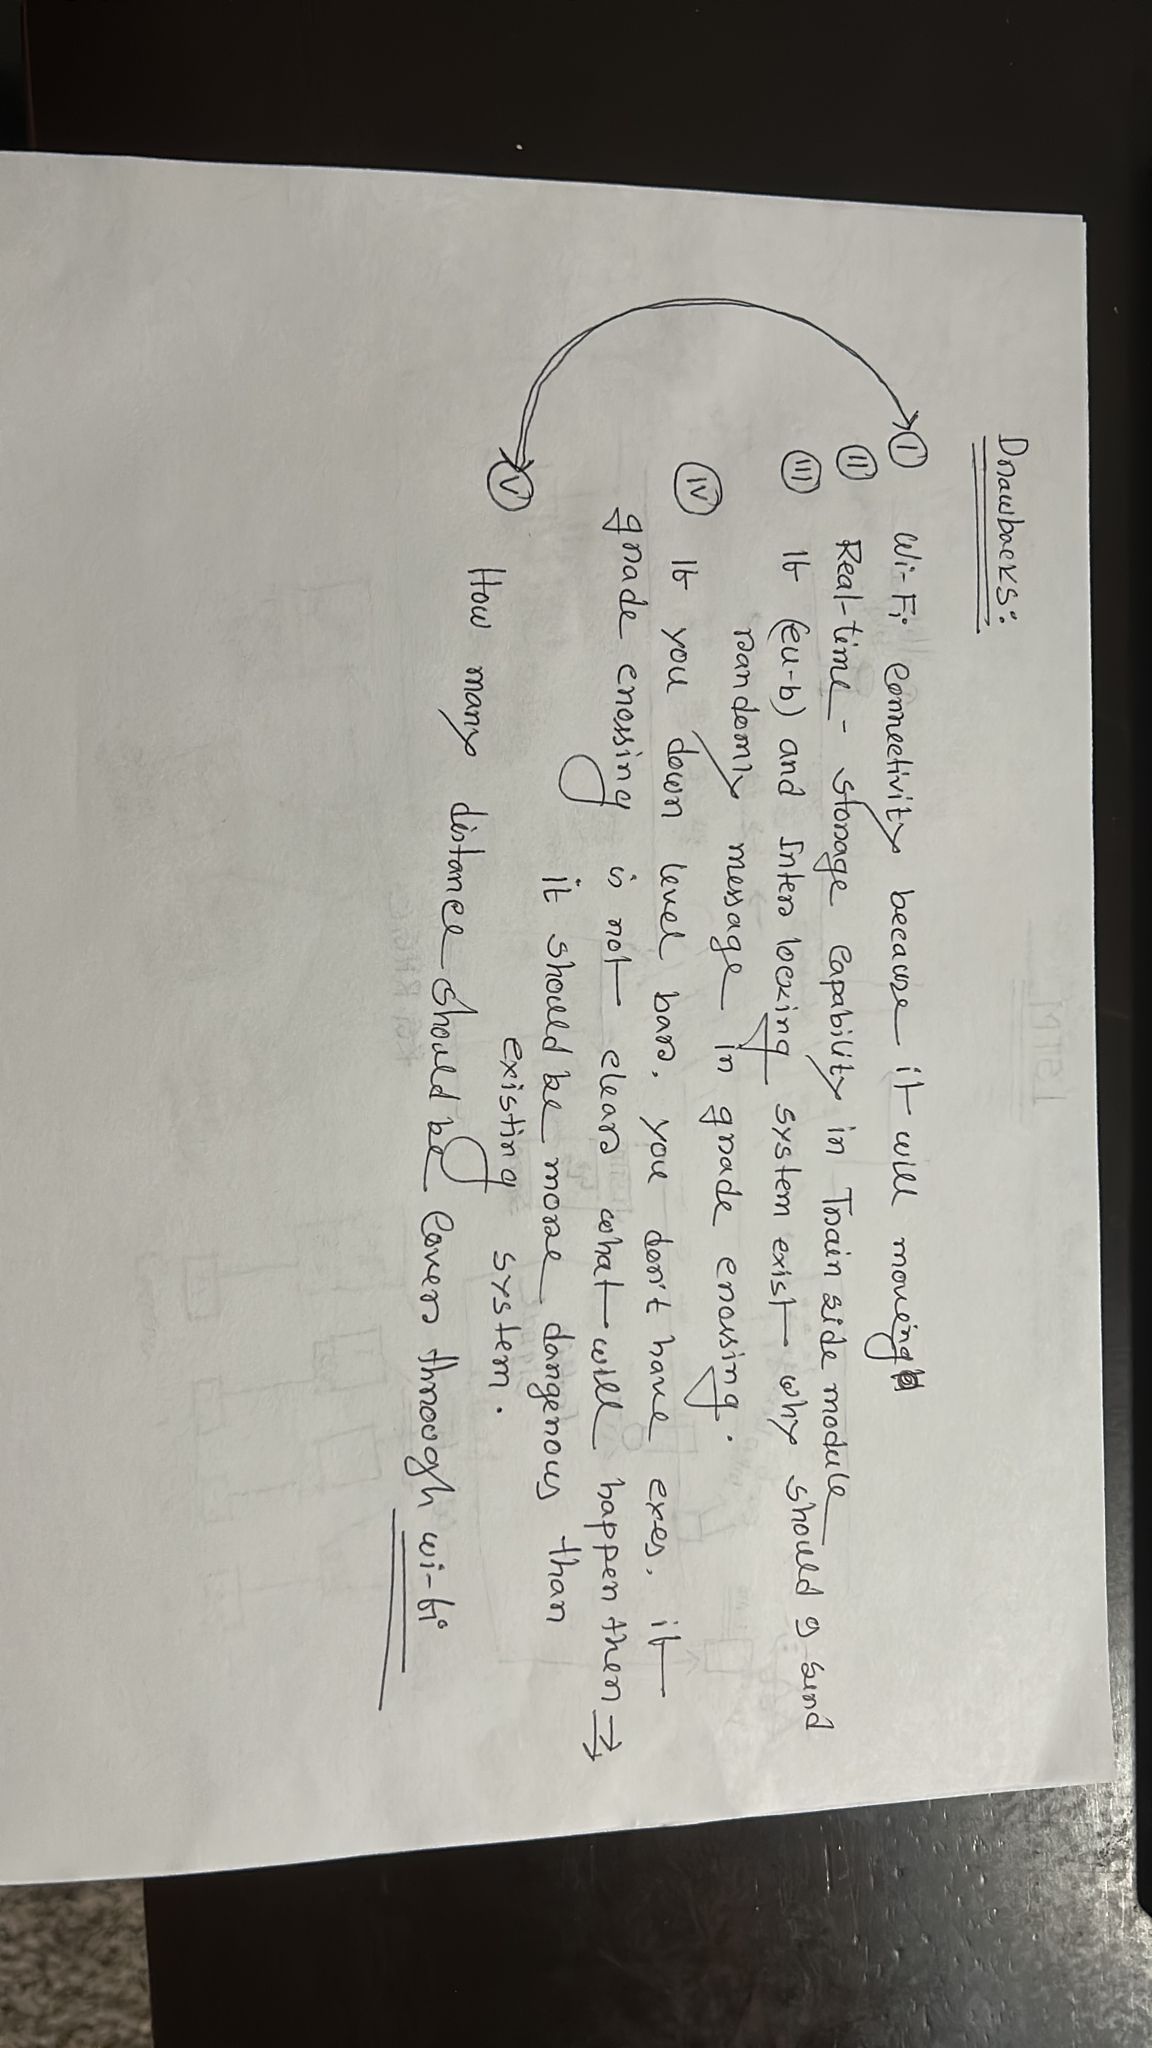 Drawbacks:
I Wi-Fi connectivity because it will moving
II Real-time - storage capability in Train side module
III If (eu-b) and Inter locking system exist why should I send
randomly message in grade crossing.
IV If you down level bar, you don't have eyes, if
grade crossing is not clear what will happen then →
it should be more dangerous than
existing system.
V How many distance should be cover through wi-fi